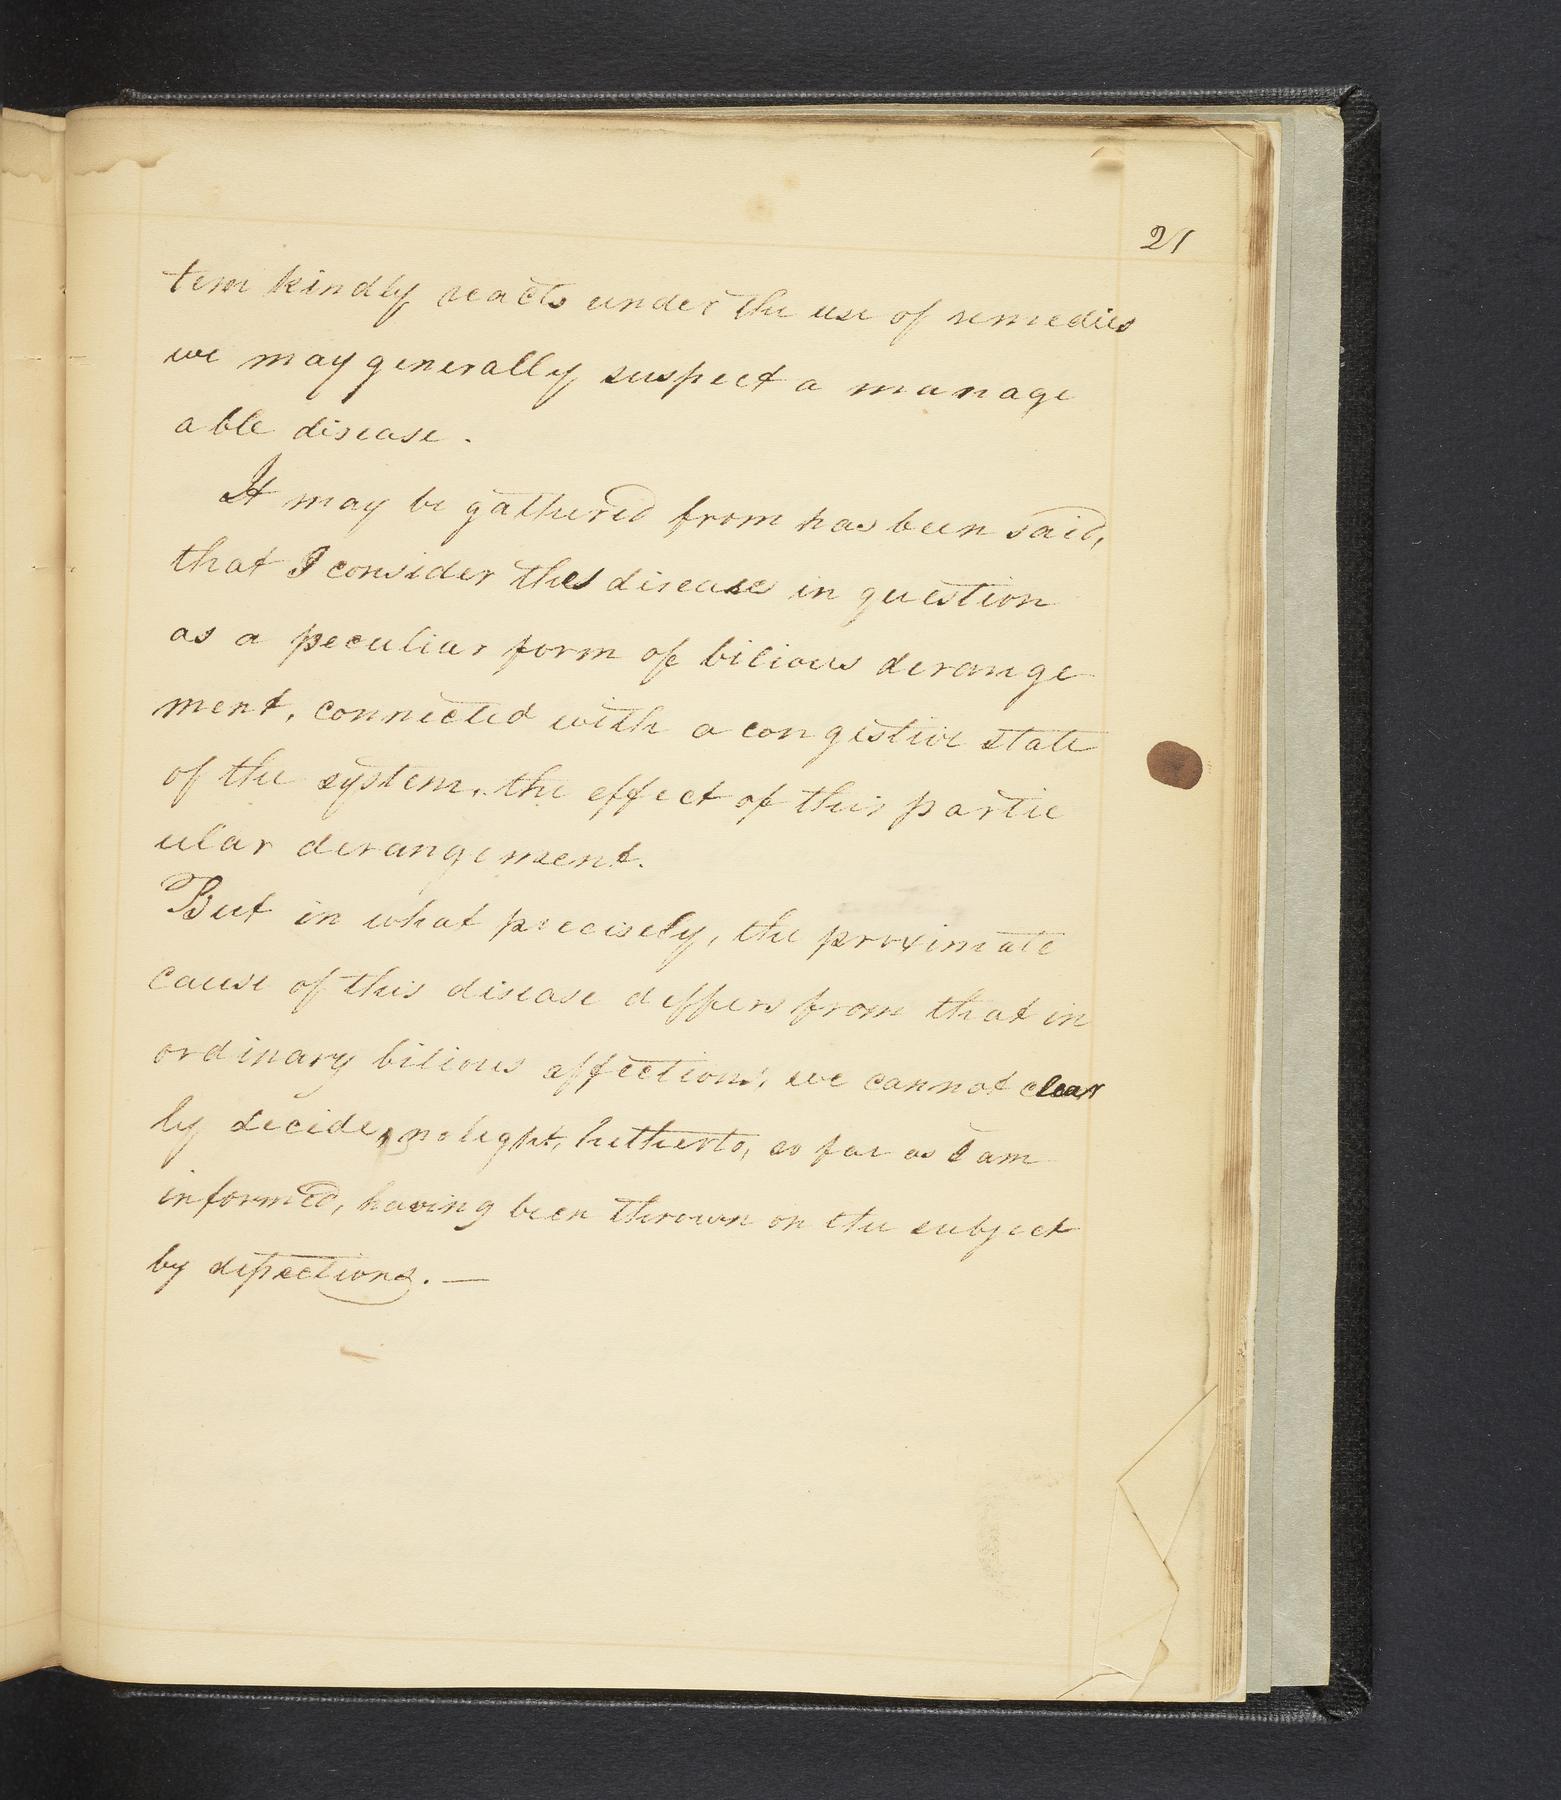 21
tem kindly reacts under the use of remedies
we may generally suspect a manage
able disease.
It may be gathered from has been said,
that I consider the disease in question
as a peculiar form of bilious derange
ment, connected with a congestive state
of the system, the effect of this partic
ular derangement.
But in what precisely, the proximate
cause of this disease differs from that in
ordinary bilious affections, we cannot clear
ly decide, no light, hitherto, so far as I am
informed, having been thrown on the subject
by dissections. —